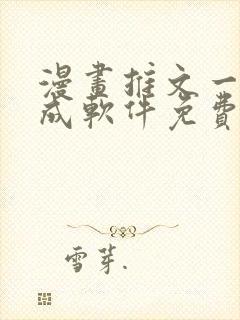 漫畫推文一
成軟件免費
雪芽.